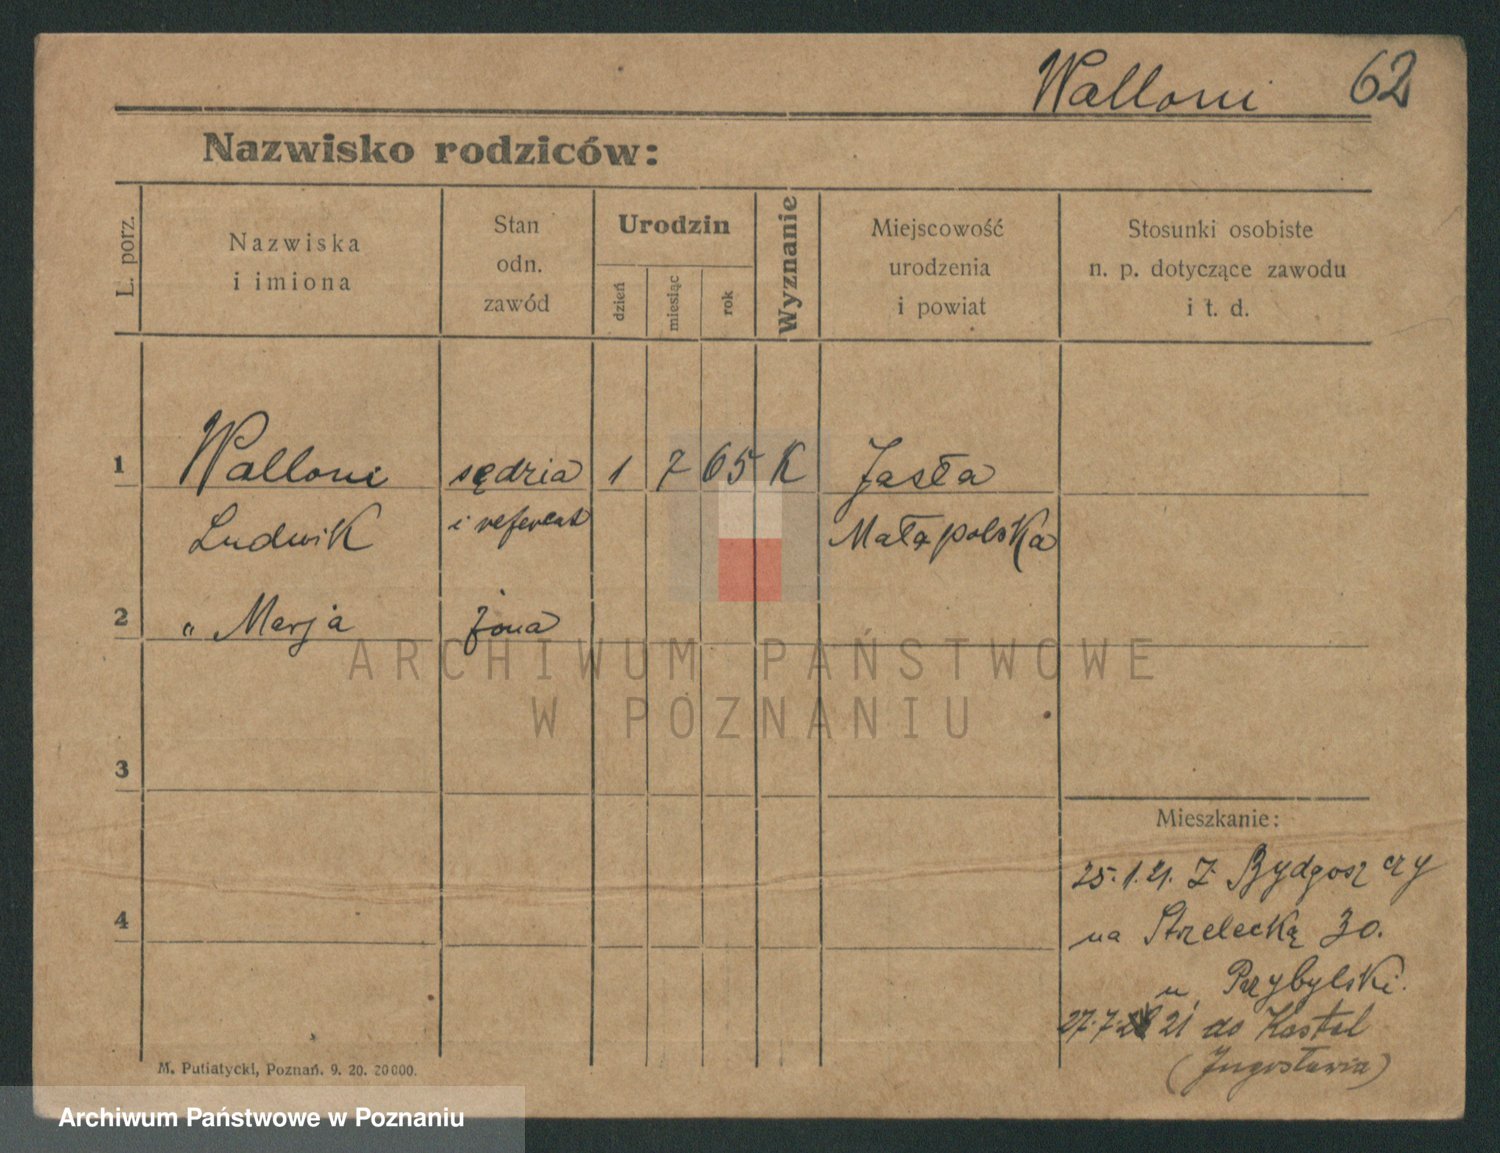 Walloni 62
Nazwisko rodziców:
L. porz.
Nazwiska
i imiona
Stan
odn.
zawód
Urodzin
dzień
miesiąc
rok
Wyznanie
Miejscowość
urodzenia
i powiat
Stosunki osobiste
n. p. dotyczące zawodu
i t. d.
1 Walloni sędzia 1 7 65 K Jasła
Ludwik i referent Małopolska
2 " Marja żona
ARCHIWUM PAŃSTWOWE
W POZNANIU
3
Mieszkanie:
25.1.21. Z Bydgoszczy
4
na Strzelecką 30.
u Przybylski.
27.7. 21 do Kostel
(Jugosławia)
M. Putiatycki, Poznań. 9. 20. 20000.
Archiwum Państwowe w Poznaniu